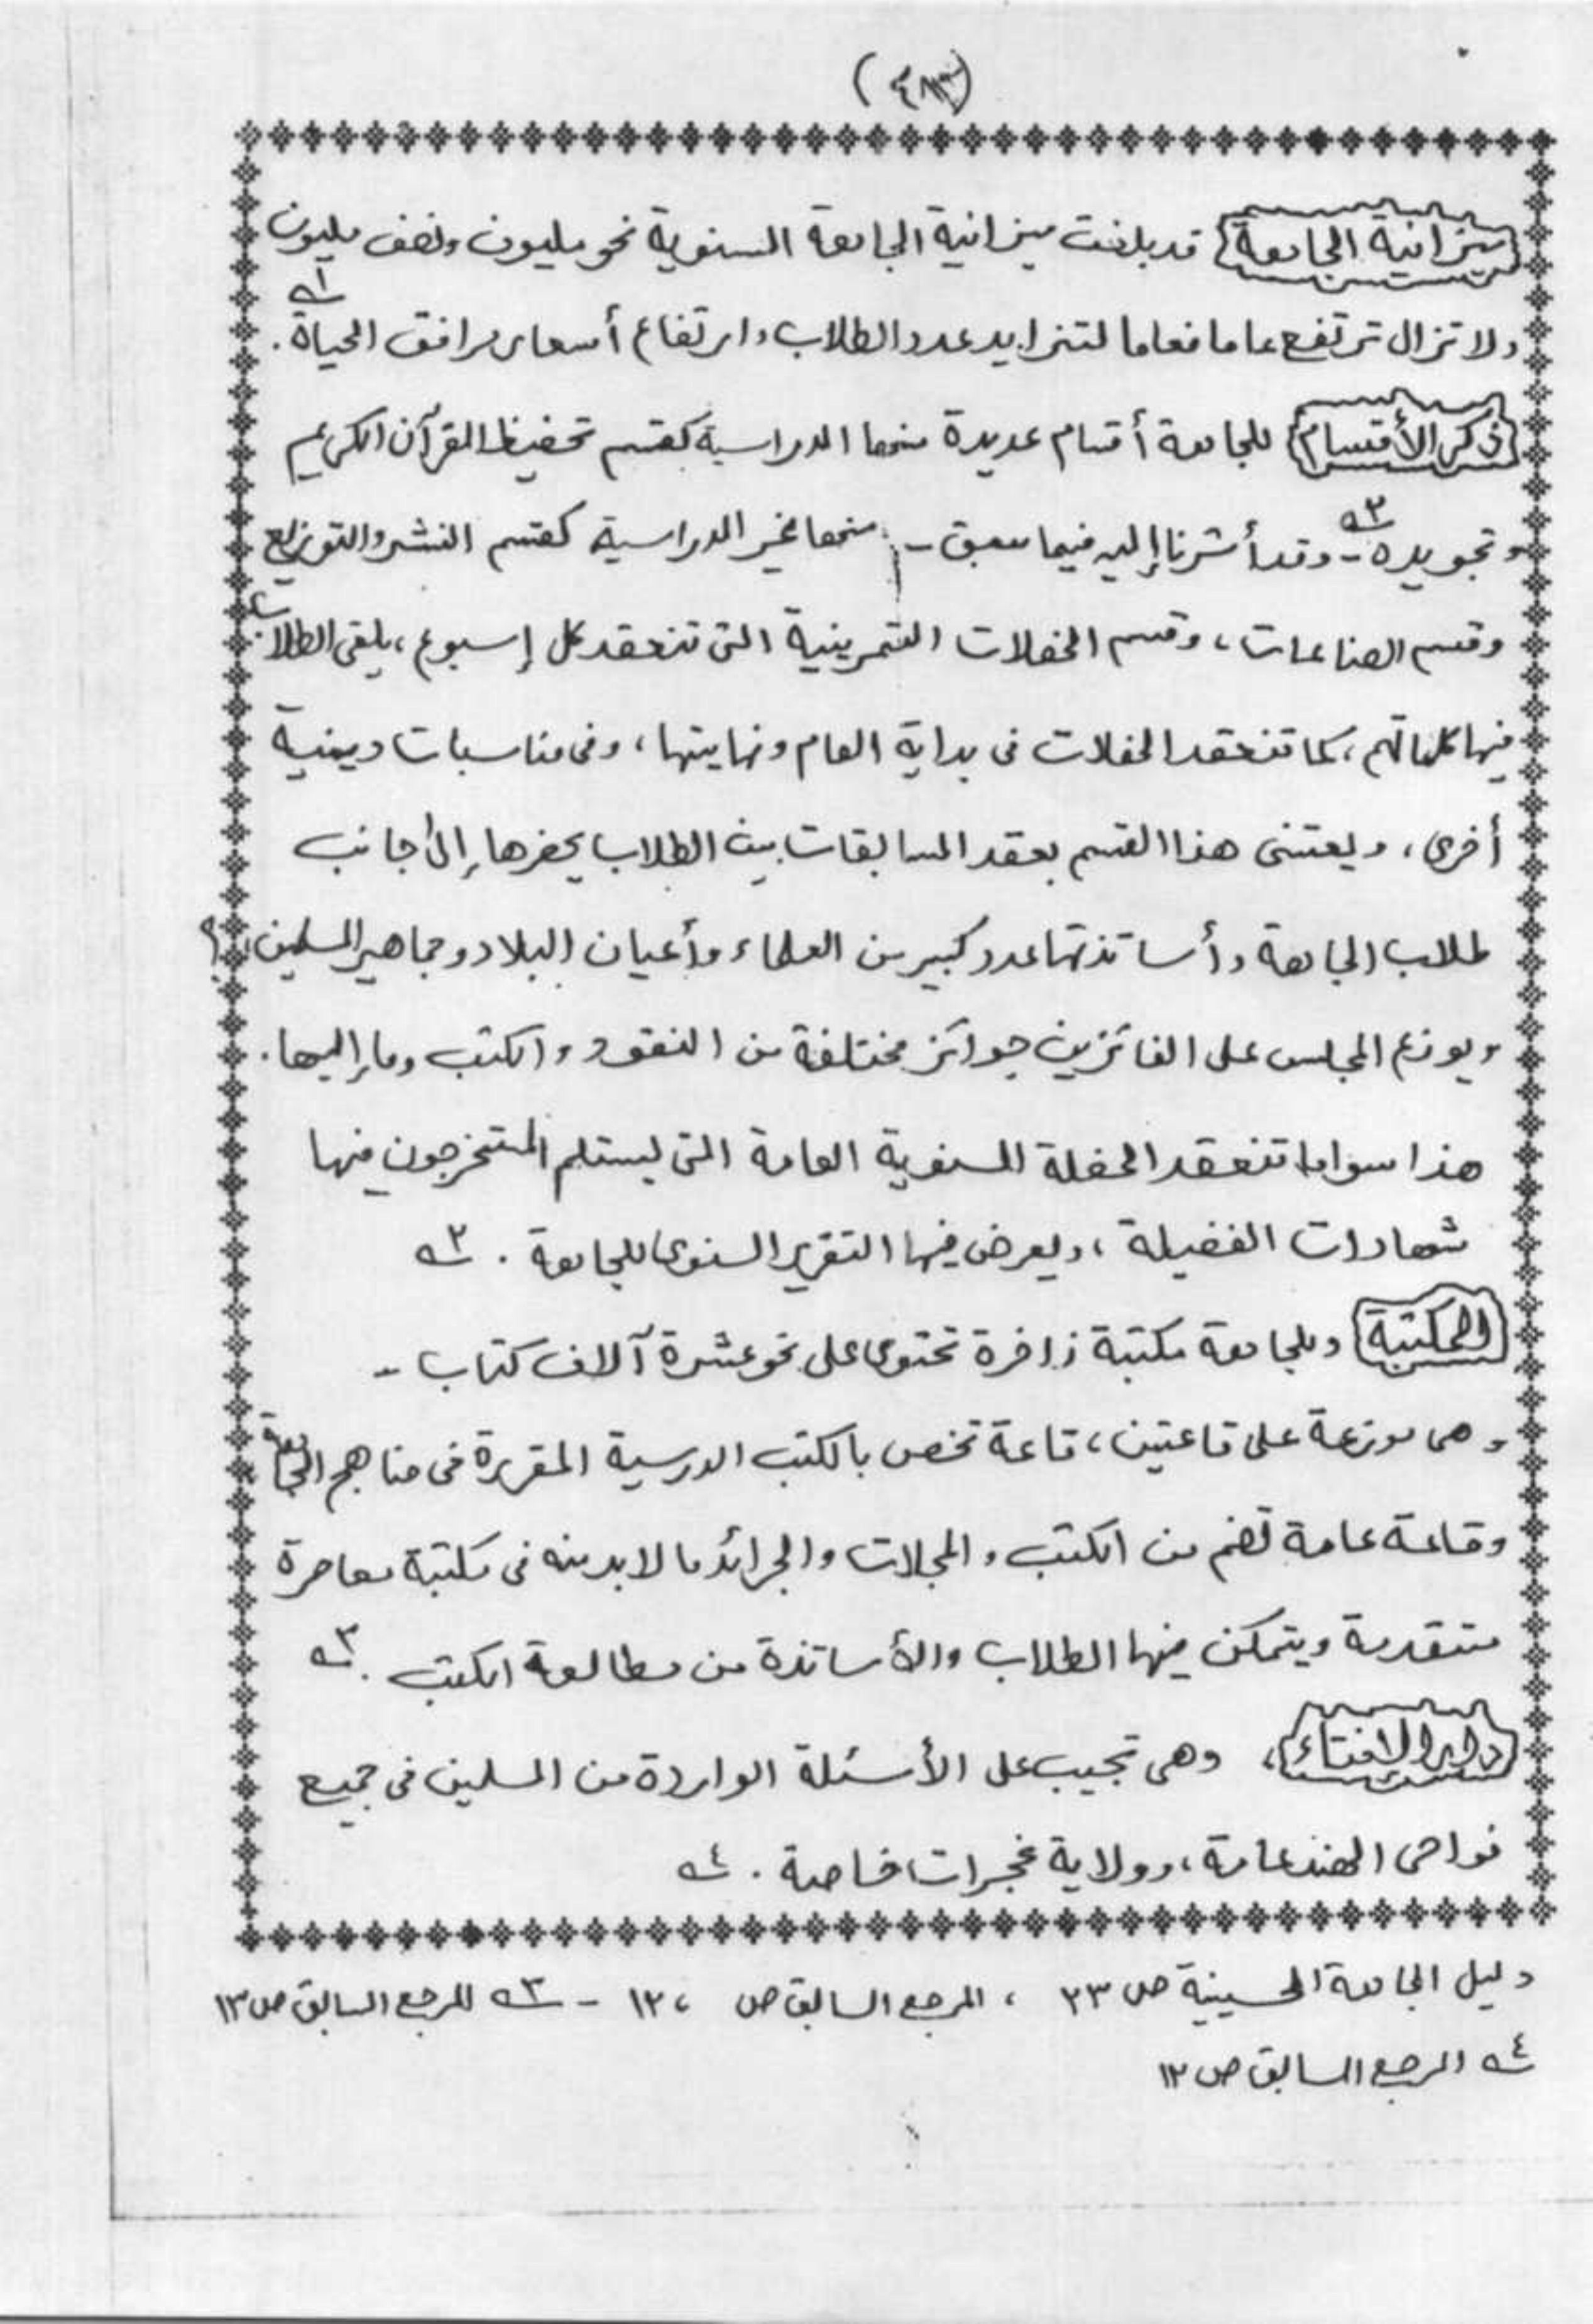 ميزانية الجامعة قد بلغت ميزانية الجامعة السنوية نحو مليون ونصف مليون
ولا تزال ترتفع عاما فعاما لتزايد عدد الطلاب وارتفاع أسعار مرافق الحياة ١ .
ذكر الأقسام للجامعة أقسام عديدة منها الدراسية كقسم تحفيظ القرآن الكريم
وتجويده ٢ - وقد أشرنا إليه فيما سبق - منها غير الدراسية كقسم النشر والتوزيع
وقسم الصناعات ، وقسم الحفلات التمرينية التى تنعقد كل إسبوع ، يلقى الطلاب
فيها كلماتهم ، كما تنعقد الحفلات فى بداية العام ونهايتها ، وفى مناسبات دينية
أخرى ، ويعتنى هذا القسم بعقد المسابقات بين الطلاب يحضرها إلى جانب
طلاب الجامعة وأساتذتها عدد كبير من العلماء وأعيان البلاد وجماهير المسلمين
ويوزع المجلس على الفائزين جوائز مختلفة من النقود والكتب وما إليها .
هذا سوا ما تنعقد الحفلة السنوية العامة التى يستلم المتخرجون فيها
شهادات الفضيلة ، ويعرض فيها التقرير السنوى للجامعة . ٢
المكتبة وللجامعة مكتبة زاخرة تحتوى على نحو عشرة آلاف كتاب -
وهى موزعة على قاعتين ، قاعة تخص بالكتب الدرسية المقررة فى مناهج الجامعة
وقاعة عامة تضم من الكتب والمجلات والجرائد ما لا بد منه فى مكتبة معاصرة
متقدمة ويتمكن فيها الطلاب والأساتذة من مطالعة الكتب . ٣
دار الإفتاء ، وهى تجيب على الأسئلة الواردة من المسلمين فى جميع
نواحى الهند عامة ، وولاية غجرات خاصة . ٤
دليل الجامعة الحسينية ص ٢٣ ، المرجع السابق ص ، ١٢ - ٣ المرجع السابق ص ١٣
٤ المرجع السابق ص ١٢